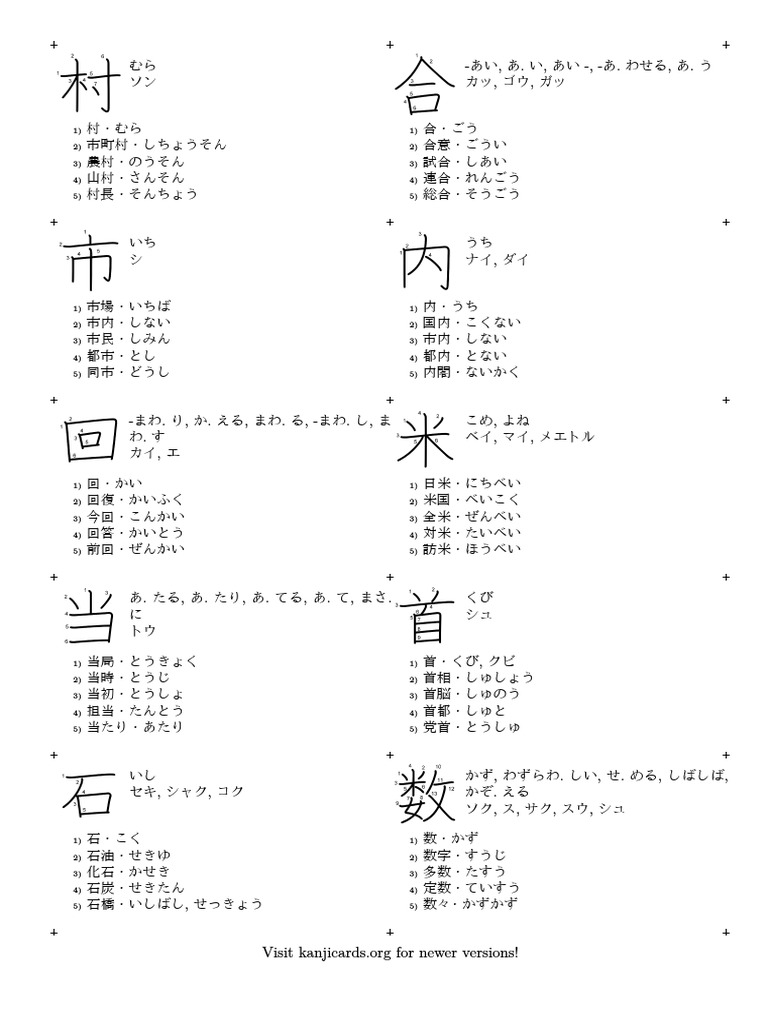 村
むら
ソン
1) 村・むら
2) 市町村・しちょうそん
3) 農村・のうそん
4) 山村・さんそん
5) 村長・そんちょう
合
-あい, あ. い, あい -, -あ. わせる, あ. う
カッ, ゴウ, ガッ
1) 合・ごう
2) 合意・ごうい
3) 試合・しあい
4) 連合・れんごう
5) 総合・そうごう
市
いち
シ
1) 市場・いちば
2) 市内・しない
3) 市民・しみん
4) 都市・とし
5) 同市・どうし
内
うち
ナイ, ダイ
1) 内・うち
2) 国内・こくない
3) 市内・しない
4) 都内・とない
5) 内閣・ないかく
回
-まわ. り, か. える, まわ. る, -まわ. し, ま
わ. す
カイ, エ
1) 回・かい
2) 回復・かいふく
3) 今回・こんかい
4) 回答・かいとう
5) 前回・ぜんかい
米
こめ, よね
ベイ, マイ, メエトル
1) 日米・にちべい
2) 米国・べいこく
3) 全米・ぜんべい
4) 対米・たいべい
5) 訪米・ほうべい
当
あ. たる, あ. たり, あ. てる, あ. て, まさ.
に
トウ
1) 当局・とうきょく
2) 当時・とうじ
3) 当初・とうしょ
4) 担当・たんとう
5) 当たり・あたり
首
くび
シュ
1) 首・くび, クビ
2) 首相・しゅしょう
3) 首脳・しゅのう
4) 首都・しゅと
5) 党首・とうしゅ
石
いし
セキ, シャク, コク
1) 石・こく
2) 石油・せきゆ
3) 化石・かせき
4) 石炭・せきたん
5) 石橋・いしばし, せっきょう
数
かず, わずらわ. しい, せ. める, しばしば,
かぞ. える
ソク, ス, サク, スウ, シュ
1) 数・かず
2) 数字・すうじ
3) 多数・たすう
4) 定数・ていすう
5) 数々・かずかず
Visit kanjicards.org for newer versions!